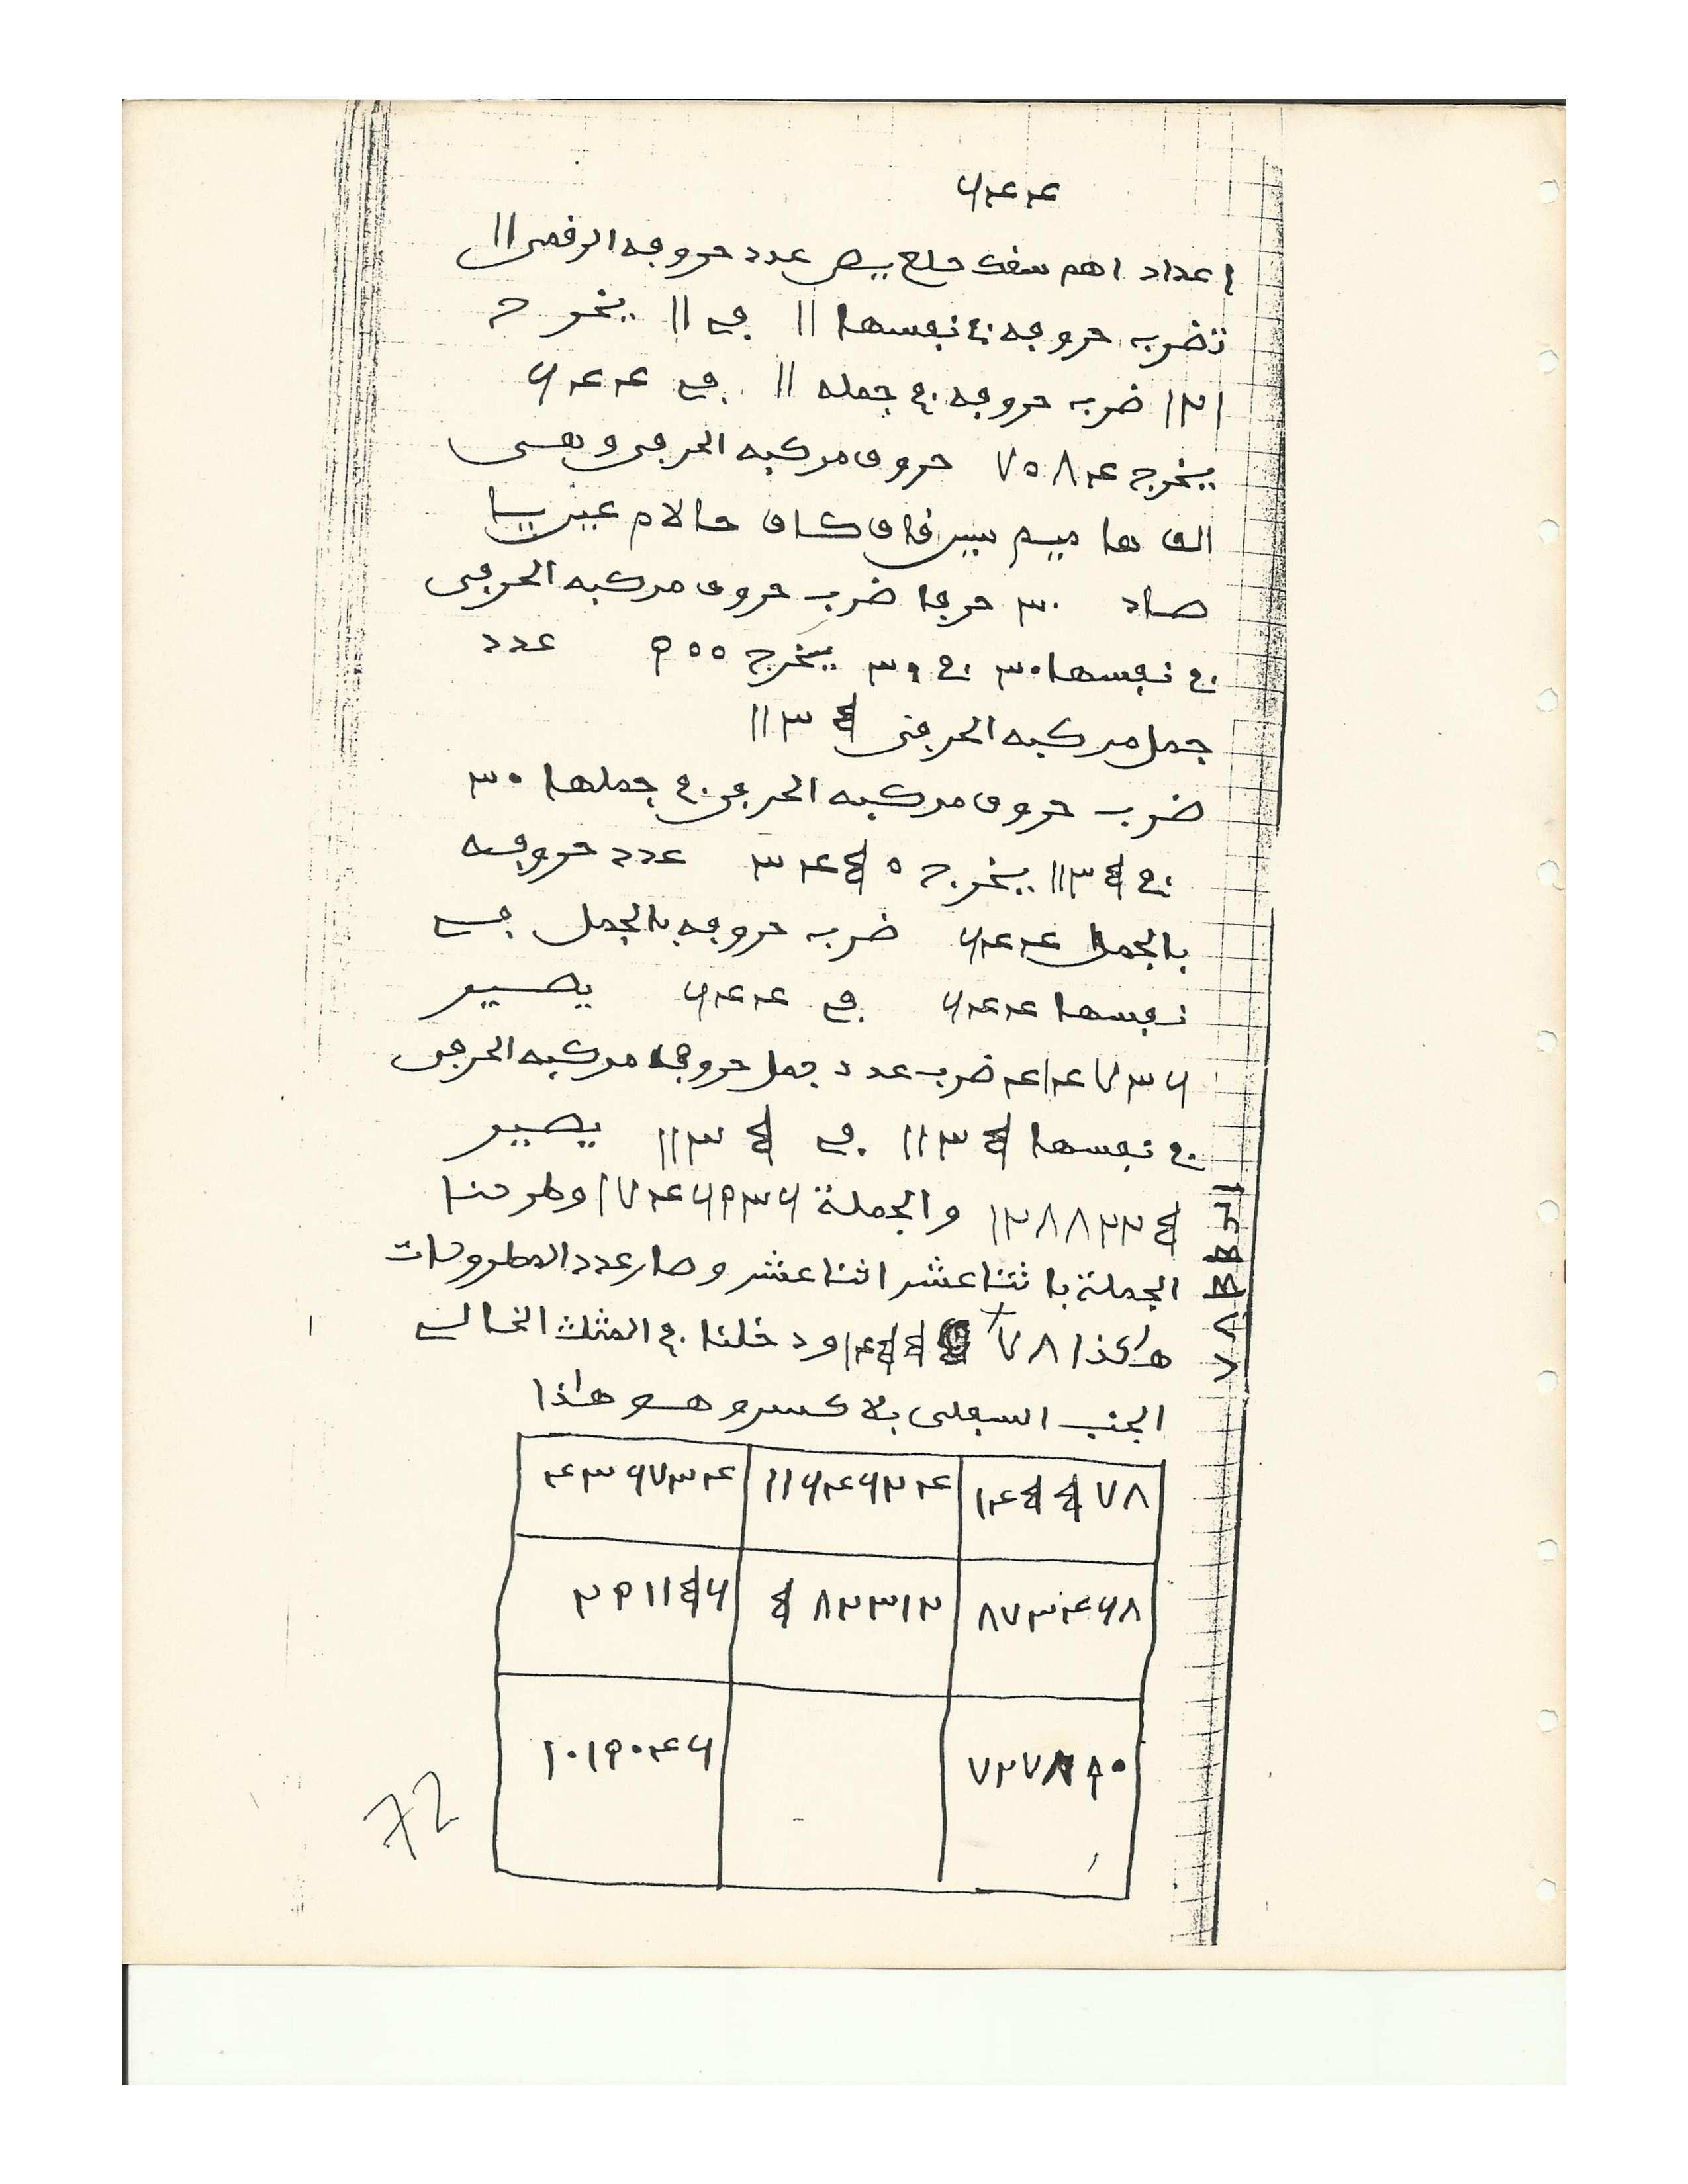 ٦٤٤
اعداد اهم سفك حلع يص عدد حروفه الرقمى ١١
تضرب حروفه في نفسها ١١ في ١١ يخرج
١٢١ ضرب حروفه في جمله ١١ في ٦٤٤
يخرج ٧٠٨٤ حروف مركبه الحرفى وهى
الف ها ميم سين فاف كاف حا لام عين يا
صاد ٣٠ حرفا ضرب حروف مركبه الحرفى
في نفسها ٣٠ في ٣٠ يخرج ٩٠٠ عدد
جمل مركبه الحرفى ١١٣٥
ضرب حروف مركبه الحرفى في جملها ٣٠
في ١١٣٥ يخرج ٣٤٥٠ عدد حروفه
بالجمل ٦٤٤ ضرب حروفه بالجمل في
نفسها ٦٤٤ في ٦٤٤ يصير
٤١٤٧٣٦ ضرب عدد جمل حروف مركبه الحرفى
في نفسها ١١٣٥ في ١١٣٥ يصير
١٢٨٨٢٢٥ والجملة ١٧٤٦٩٣٦ وطرحنا
الجملة باثنا عشر اثنا عشر وصار عدد المطروحات
هاكذا ١٤٥٥٧٨ ودخلنا في المثلث الخالي
الجنب السفلى بلا كسر وهو هاذا
١٤٥٥٧٨ ١١٦٤٦٢٤ ٤٣٦٧٣٤
٨٧٣٤٦٨ ٥٨٢٣١٢ ٢٩١١٥٦
٧٢٧٨٩٠ ١٠١٩٠٤٦
١٤٥٥٧٨
72